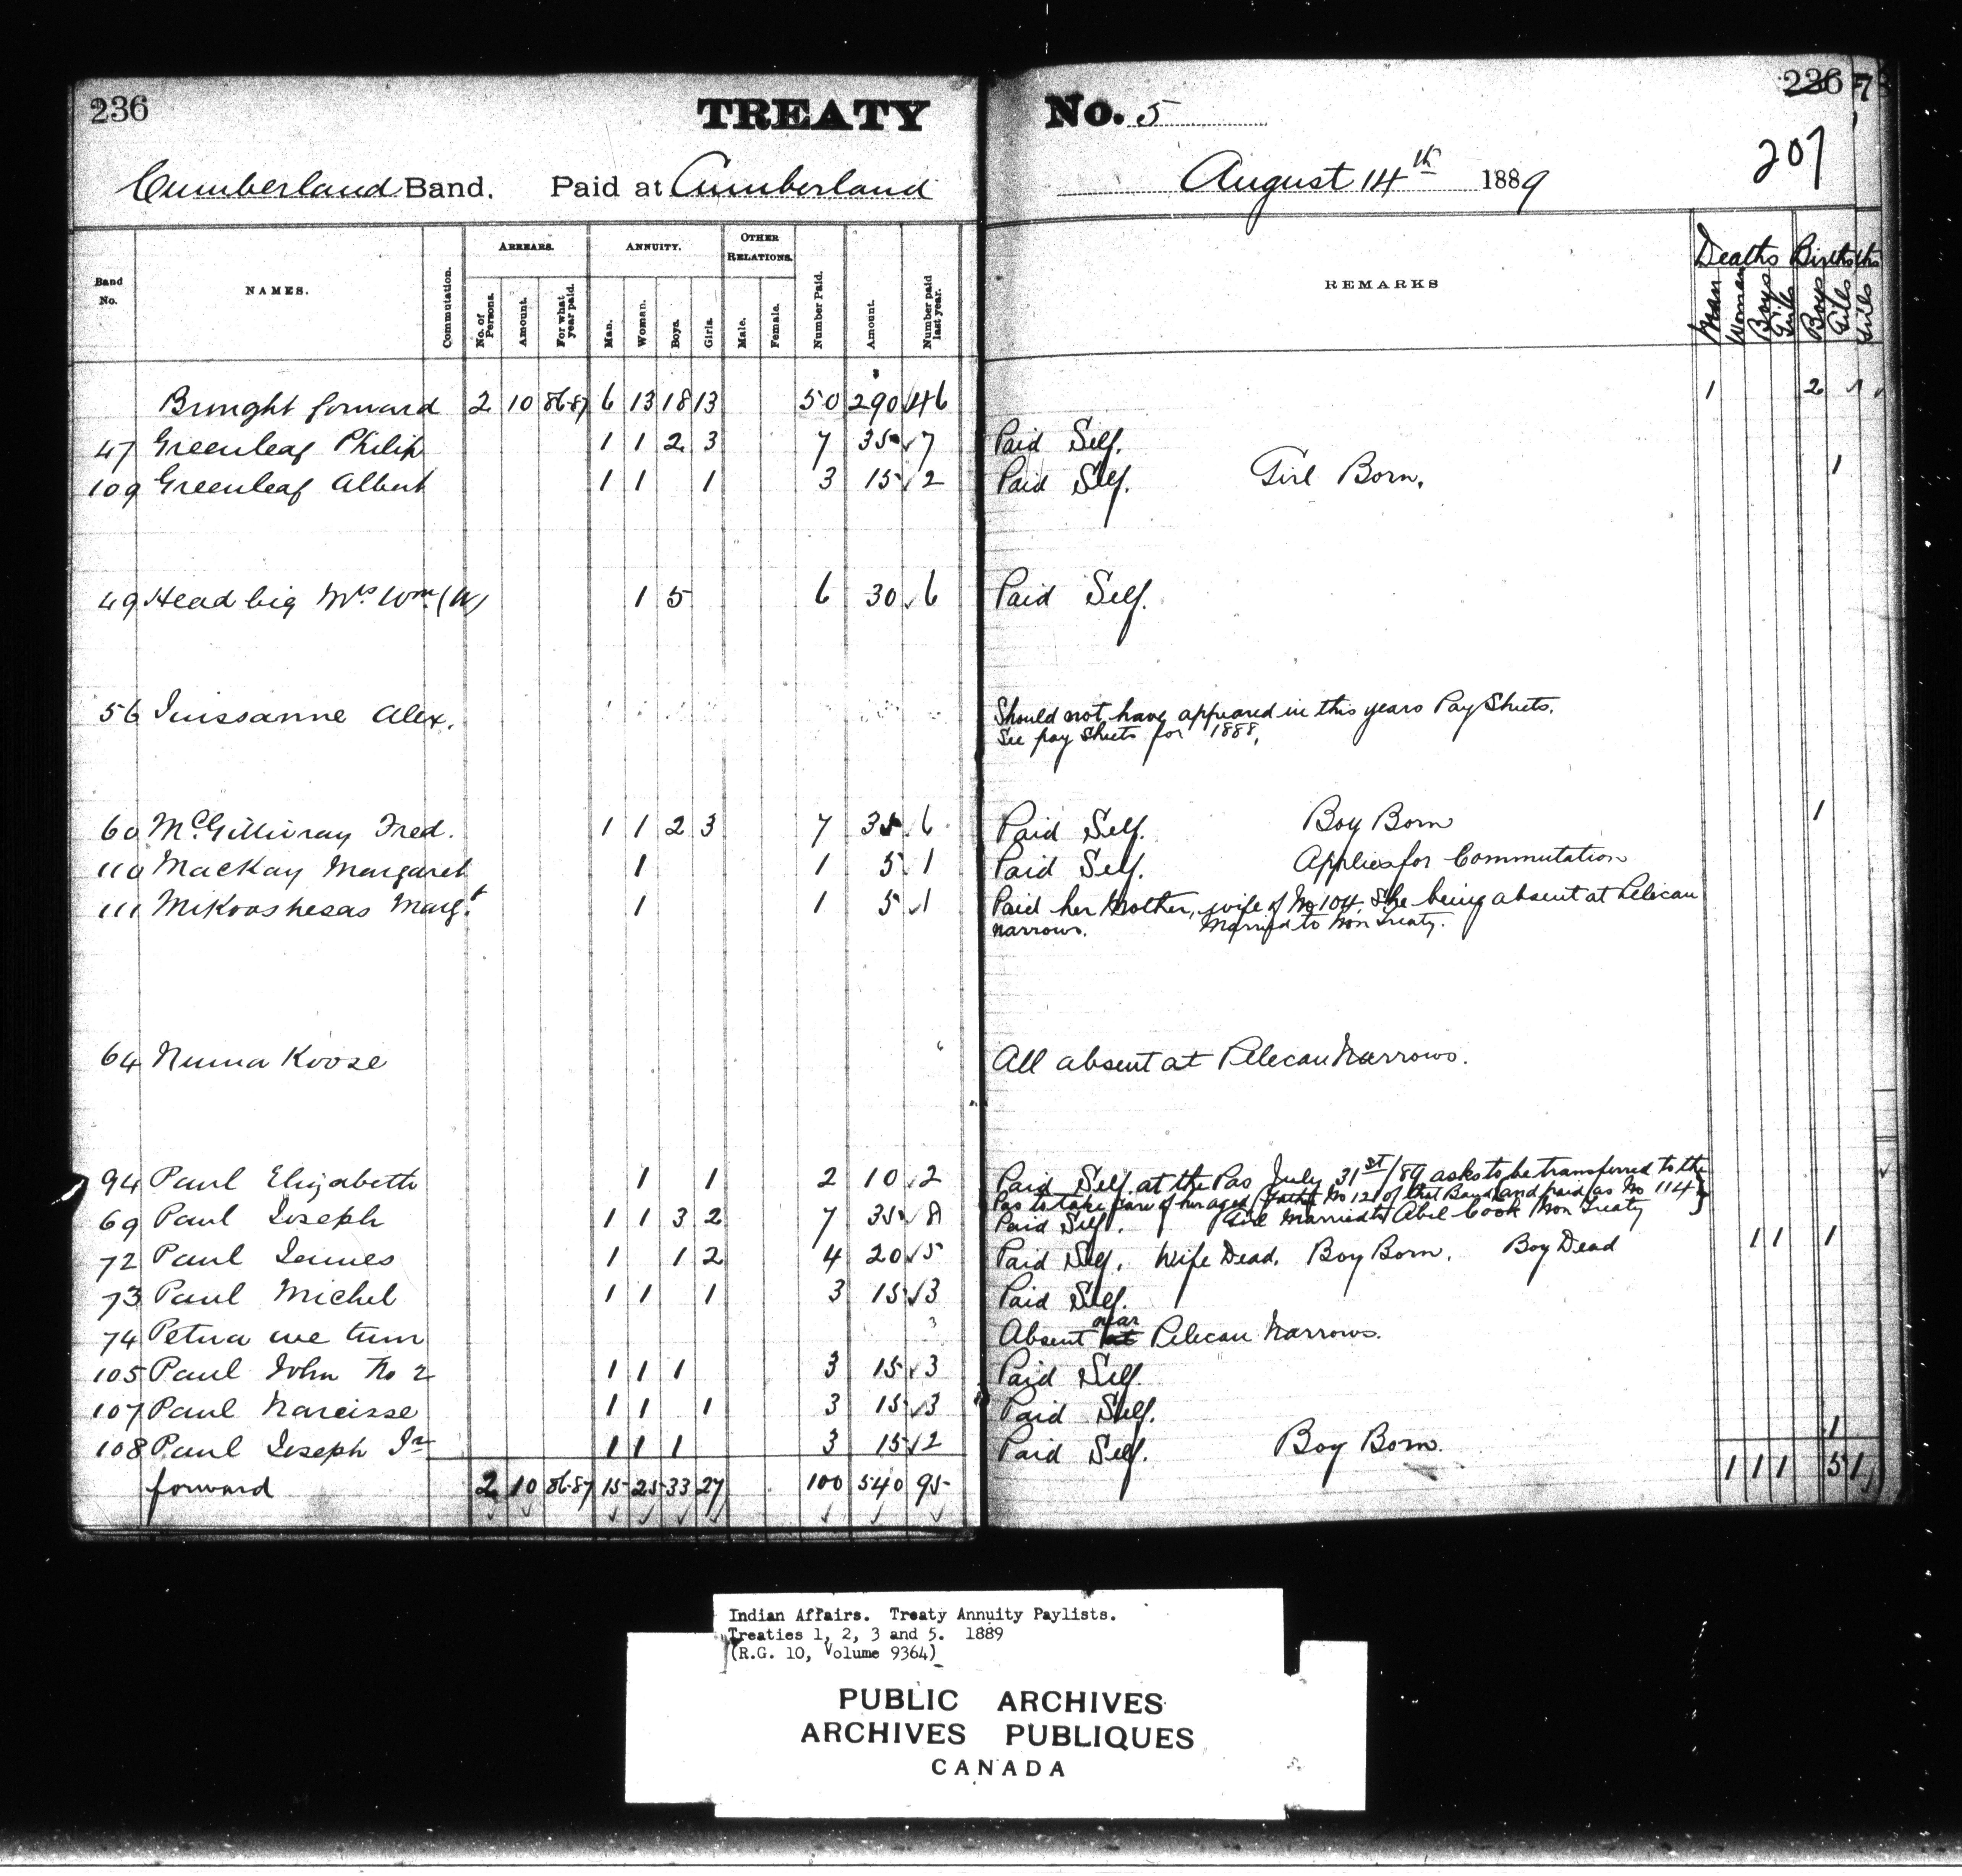 236 TREATY No. 5 236 7
207
Cumberland Band. Paid at Cumberland August 14th 1889
Band No. NAMES. Commutation. ARREARS. No. of Persons. Amount. For what year paid. ANNUITY. Man. Woman. Boys. Girls. OTHER RELATIONS. Male. Female. Number Paid. Amount. Number paid last year. REMARKS Deaths Man Woman Boys Girls Births Boys Girls
Brought forward 2 10 86-87 6 13 18 13 50 290 46 1 2 1
47 Greenleaf Philip 1 1 2 3 7 35 7 Paid Self.
109 Greenleaf Albert 1 1 1 3 15 2 Paid Self. Girl Born. 1
49 Head big Mrs Wm (W) 1 5 6 30 6 Paid Self.
56 Alex. Should not have appeared in this years Pay Sheets.
See pay sheets for 1888.
60 McGillivray Fred. 1 1 2 3 7 35 6 Paid Self. Boy Born 1
110 MacKay Margaret 1 1 5 1 Paid Self. Applies for Commutation
111 Mikooshesas Margt 1 1 5 1 Paid her Mother, wife of No 104. She being absent at Pelican
narrows. Married to Non Treaty.
64 Numa Koose All absent at Pelican Narrows.
94 Paul Elizabeth 1 1 2 10 2 Paid Self at the Pas July 31st/89 asks to be transferred to the
Pas to take care of her aged father No 121 of that Band and paid as No 114
69 Paul Joseph 1 1 3 2 7 35 8 Paid Self. Girl Married to Abel Cook Non Treaty
72 Paul James 1 1 2 4 20 5 Paid Self. Wife Dead. Boy Born. Boy Dead 1 1 1
73 Paul Michel 1 1 1 3 15 3 Paid Self.
74 Petwa we tum 3 Absent at near Pelican Narrows.
105 Paul John No 2 1 1 1 3 15 3 Paid Self.
107 Paul Narcisse 1 1 1 3 15 3 Paid Self.
108 Paul Joseph Jr 1 1 1 3 15 2 Paid Self. Boy Born. 1
forward 2 10 86-87 15 25 33 27 100 540 95 1 1 1 5 1
Indian Affairs. Treaty Annuity Paylists.
Treaties 1, 2, 3 and 5. 1889
(R.G. 10, Volume 9364)
PUBLIC ARCHIVES
ARCHIVES PUBLIQUES
CANADA